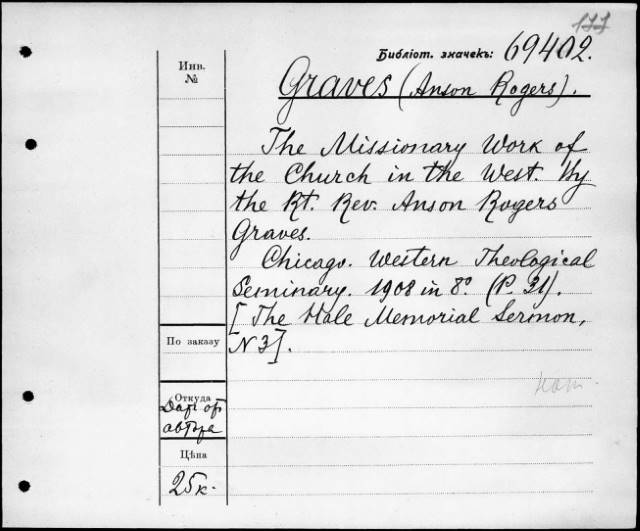 177
Библіот. значекъ: 69402.
Graves (Anson Rogers).
The Missionary Work of
the Church in the West. By
the Rt. Rev. Anson Rogers
Graves.
Chicago. Western Theological
Seminary. 1908 in 8º. (P. 21).
[The Hale Memorial Sermon,
N 3].
Инв.
№
По заказу
Откуда
Даръ отъ
автора
Цѣна
25 к.